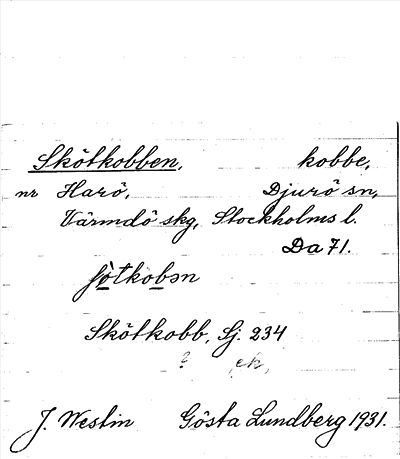 Skötkobben, kobbe,
nr Harö, Djurö sn,
Värmdö skg, Stockholms l.
Da 71.
ʃö̀tkobən
Skötkobb, Sj. 234
? ek,
J. Westin Gösta Lundberg 1931.